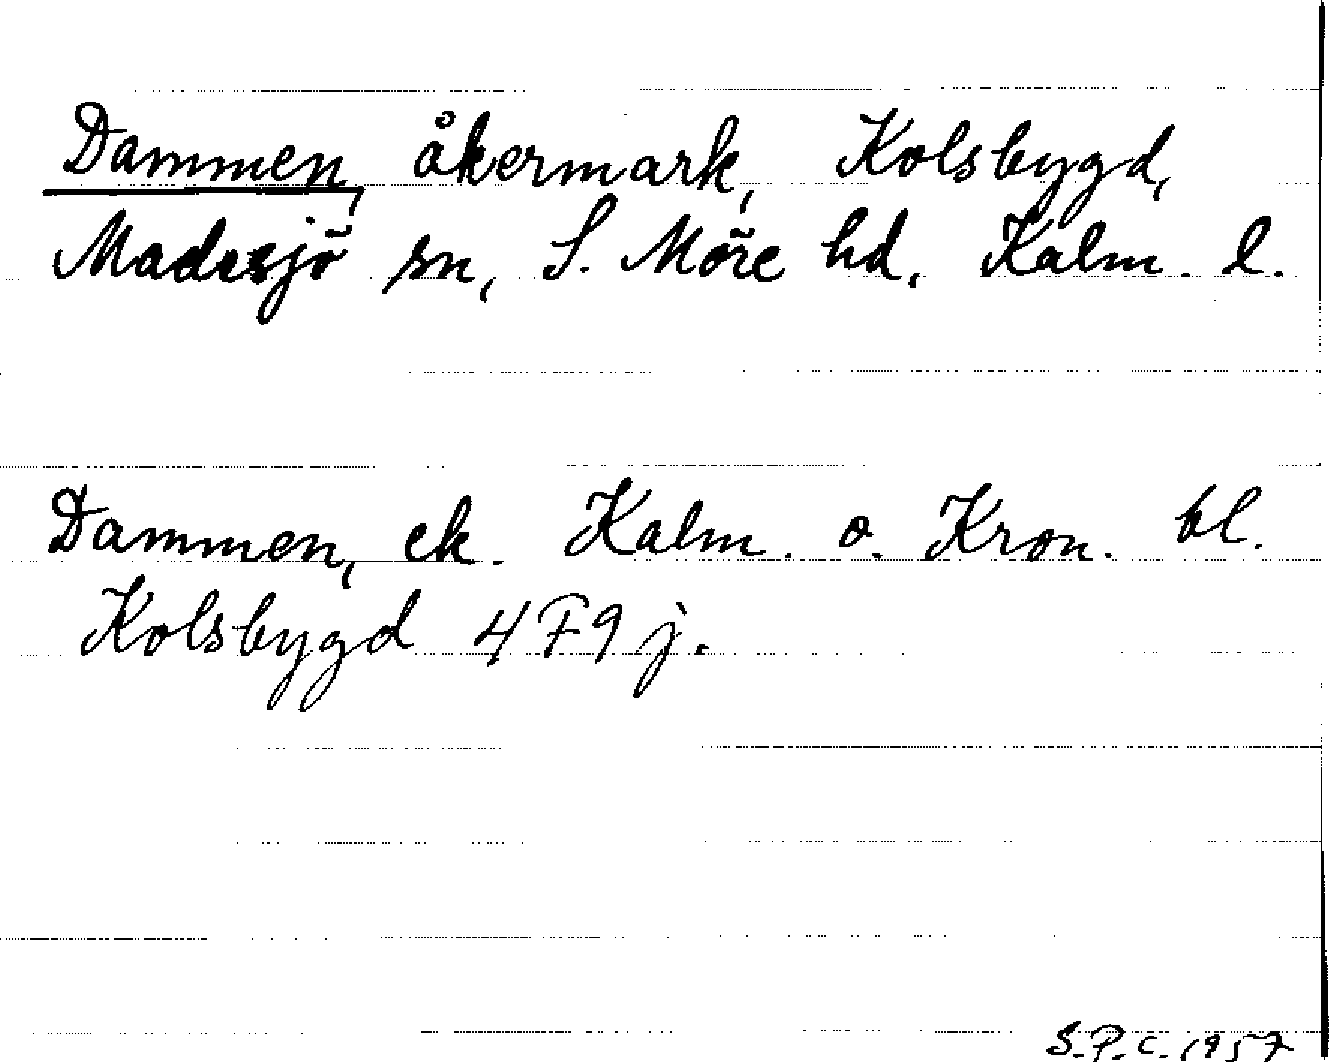 Dammen, åkermark, Kolsbygd,
Madesjö sn, S. Möre hd. Kalm. l.
Dammen, ek. Kalm. o. Kron. bl.
Kolsbygd 4 F 9 j.
S.P.C. 1957